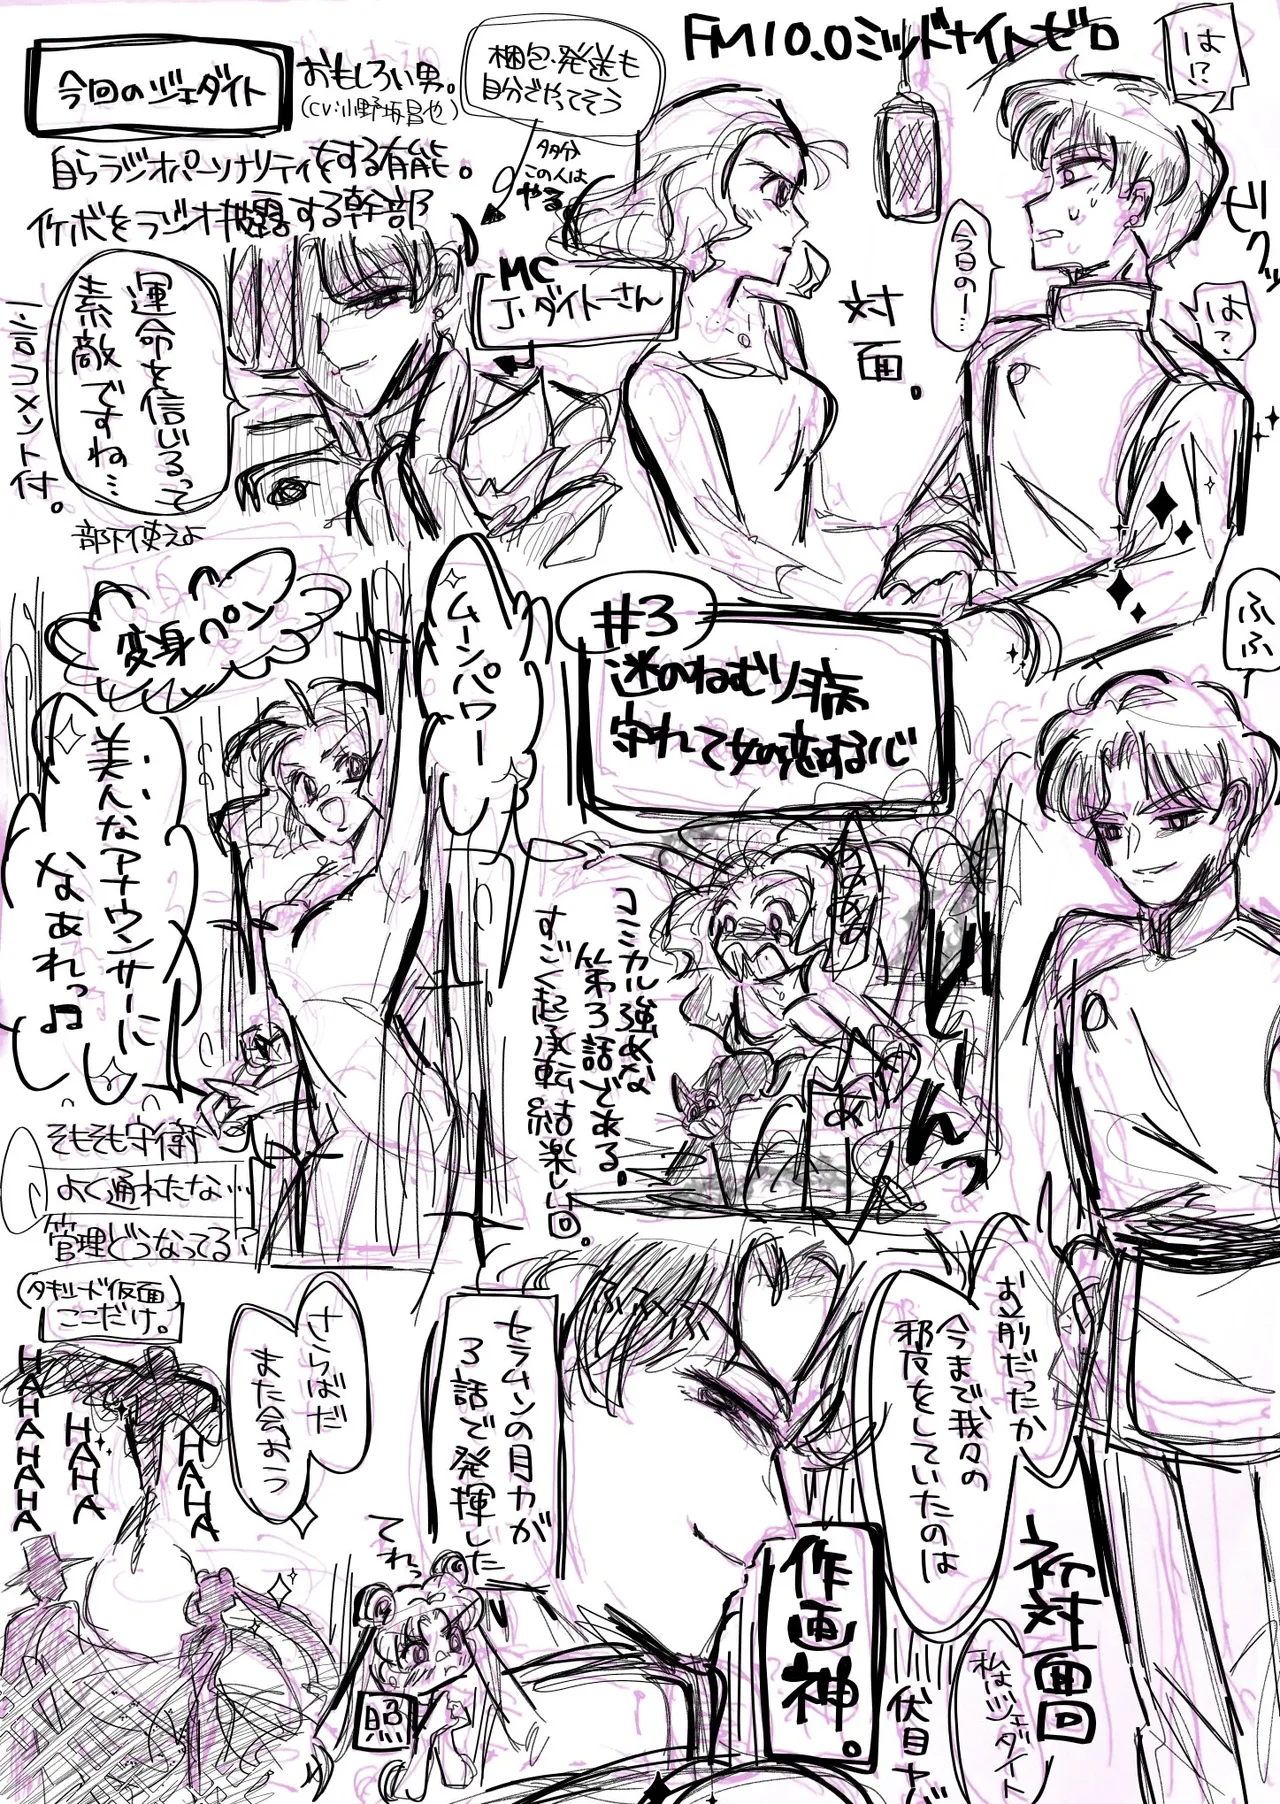 FM10.0ミッドナイトゼロ
は!?
今回のジェダイト
おもしろい男。
(CV:小野坂昌也)
梱包・発送も
自分でやってそう
多分
この人は
やる。
自らラジオパーソナリティをする有能。
イケボをラジオ披露する幹部
ビクッ
今日のー…
は?
対面。
MC
J・ダイトーさん
運命を信じるって
素敵ですね…
一言コメント付。
部下使えよ
変身ペン
ムーンパワー
美人なアナウンサーに
なあれっ♫
#3
謎のねむり病
守れ乙女の恋する心
ふふ
コミカル強めな
第3話である。
すごく起承転結楽しい回。
そもそも守衛
よく通れたな…
管理どうなってる?
タキシード仮面
ここだけ。
HAHAHAHA
HAHA
HAHA
さらばだ
また会おうっ
セラムンの月力が
3話で発揮した
作画神。
ふふふふ
お前だったか
今まで我々の
邪魔をしていたのは
初対面回
私はジェダイト
伏目ヤバ
てれっ
照